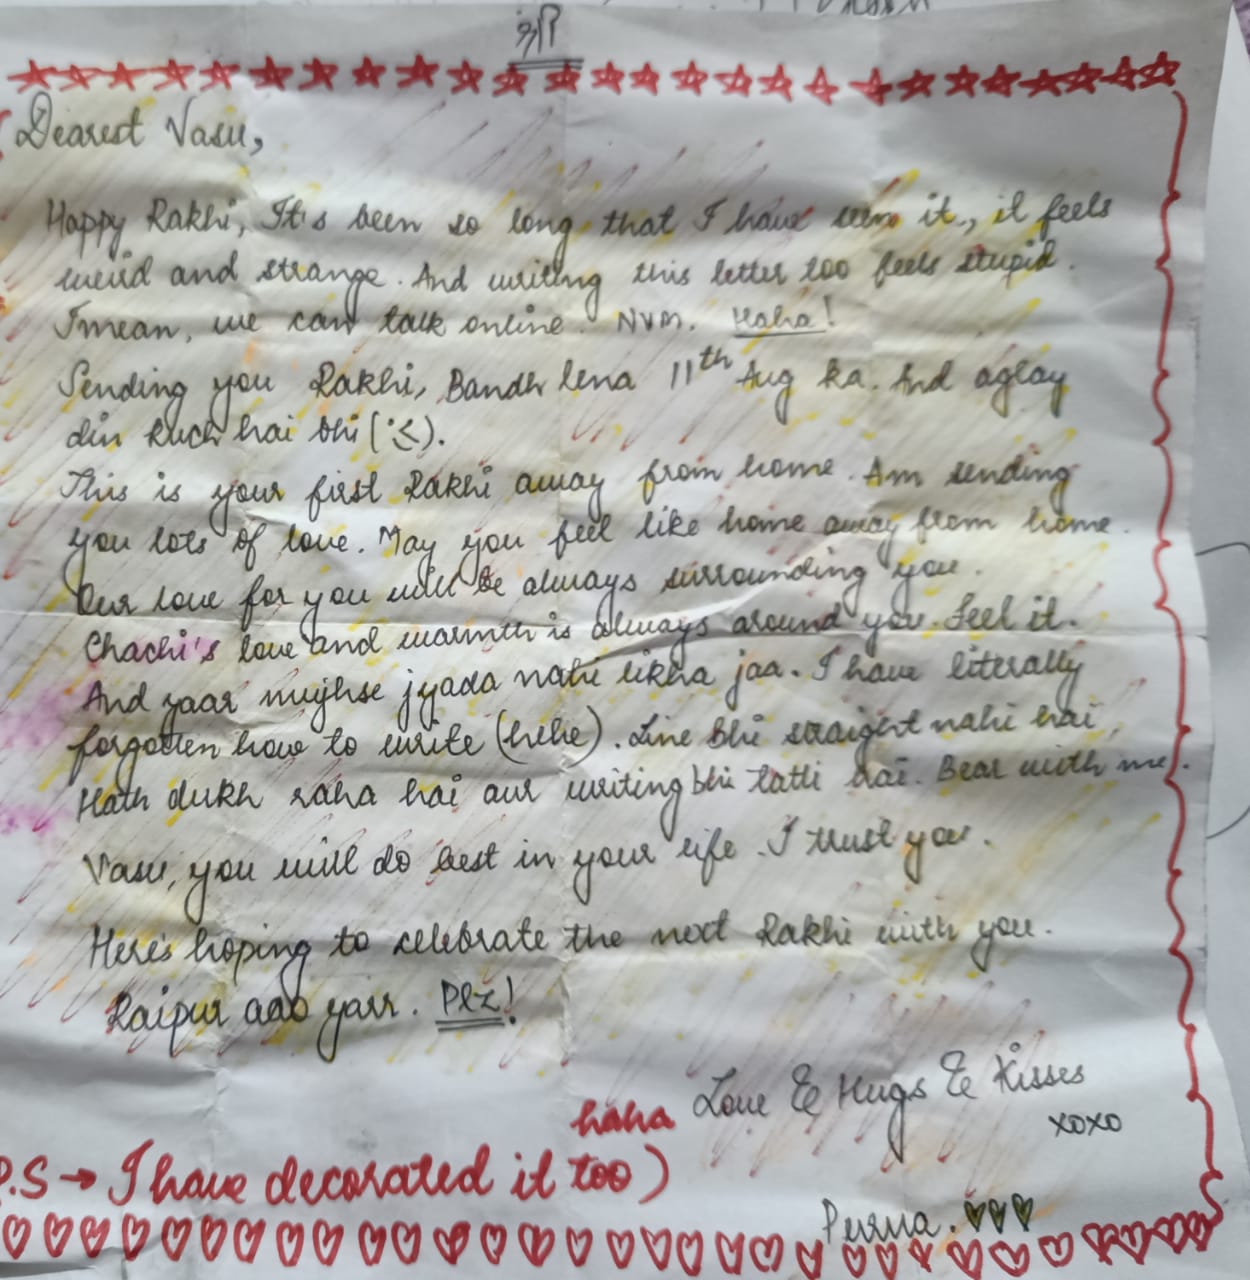 श्री
Dearest Vasu,
Happy Rakhi, It's been so long that I have seen it, it feels
weird and strange. And writing this letter too feels stupid.
I mean, we can talk online. NVM. Haha!
Sending you Rakhi, Bandh lena 11th Aug ka. And aglay
din kuch hai bhi
This is your first Rakhi away from home. Am sending
you lots of love. May you feel like home away from home.
Our love for you will be always surrounding you.
Chachi's love and warmth is always around you. Feel it.
And yaar mujhse jyada nahi likha jaa. I have literally
forgotten how to write (hehe). Line bhi straight nahi hai,
Hath dukh raha hai aur writing bhi tatti hai. Bear with me.
Vasu, you will do best in your life. I trust you.
Here's hoping to celebrate the next Rakhi with you.
Raipur aao yarr. Plz!
Love & Hugs & Kisses
xoxo
haha
P.S → I have decorated it too)